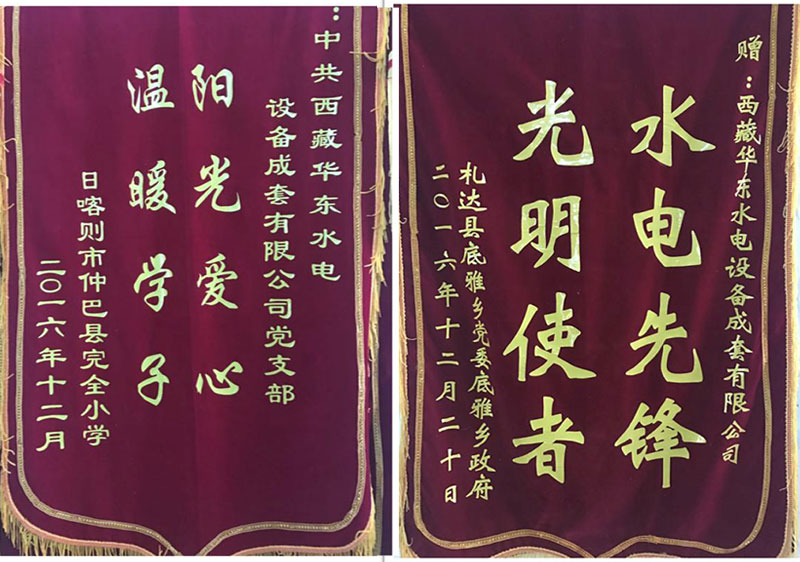 ：中共西藏华东水电
设备成套有限公司党支部
阳光爱心
温暖学子
日喀则市仲巴县完全小学
二〇一六年十二月
赠：西藏华东水电设备成套有限公司
水电先锋
光明使者
札达县底雅乡党委底雅乡政府
二〇一六年十二月二十日